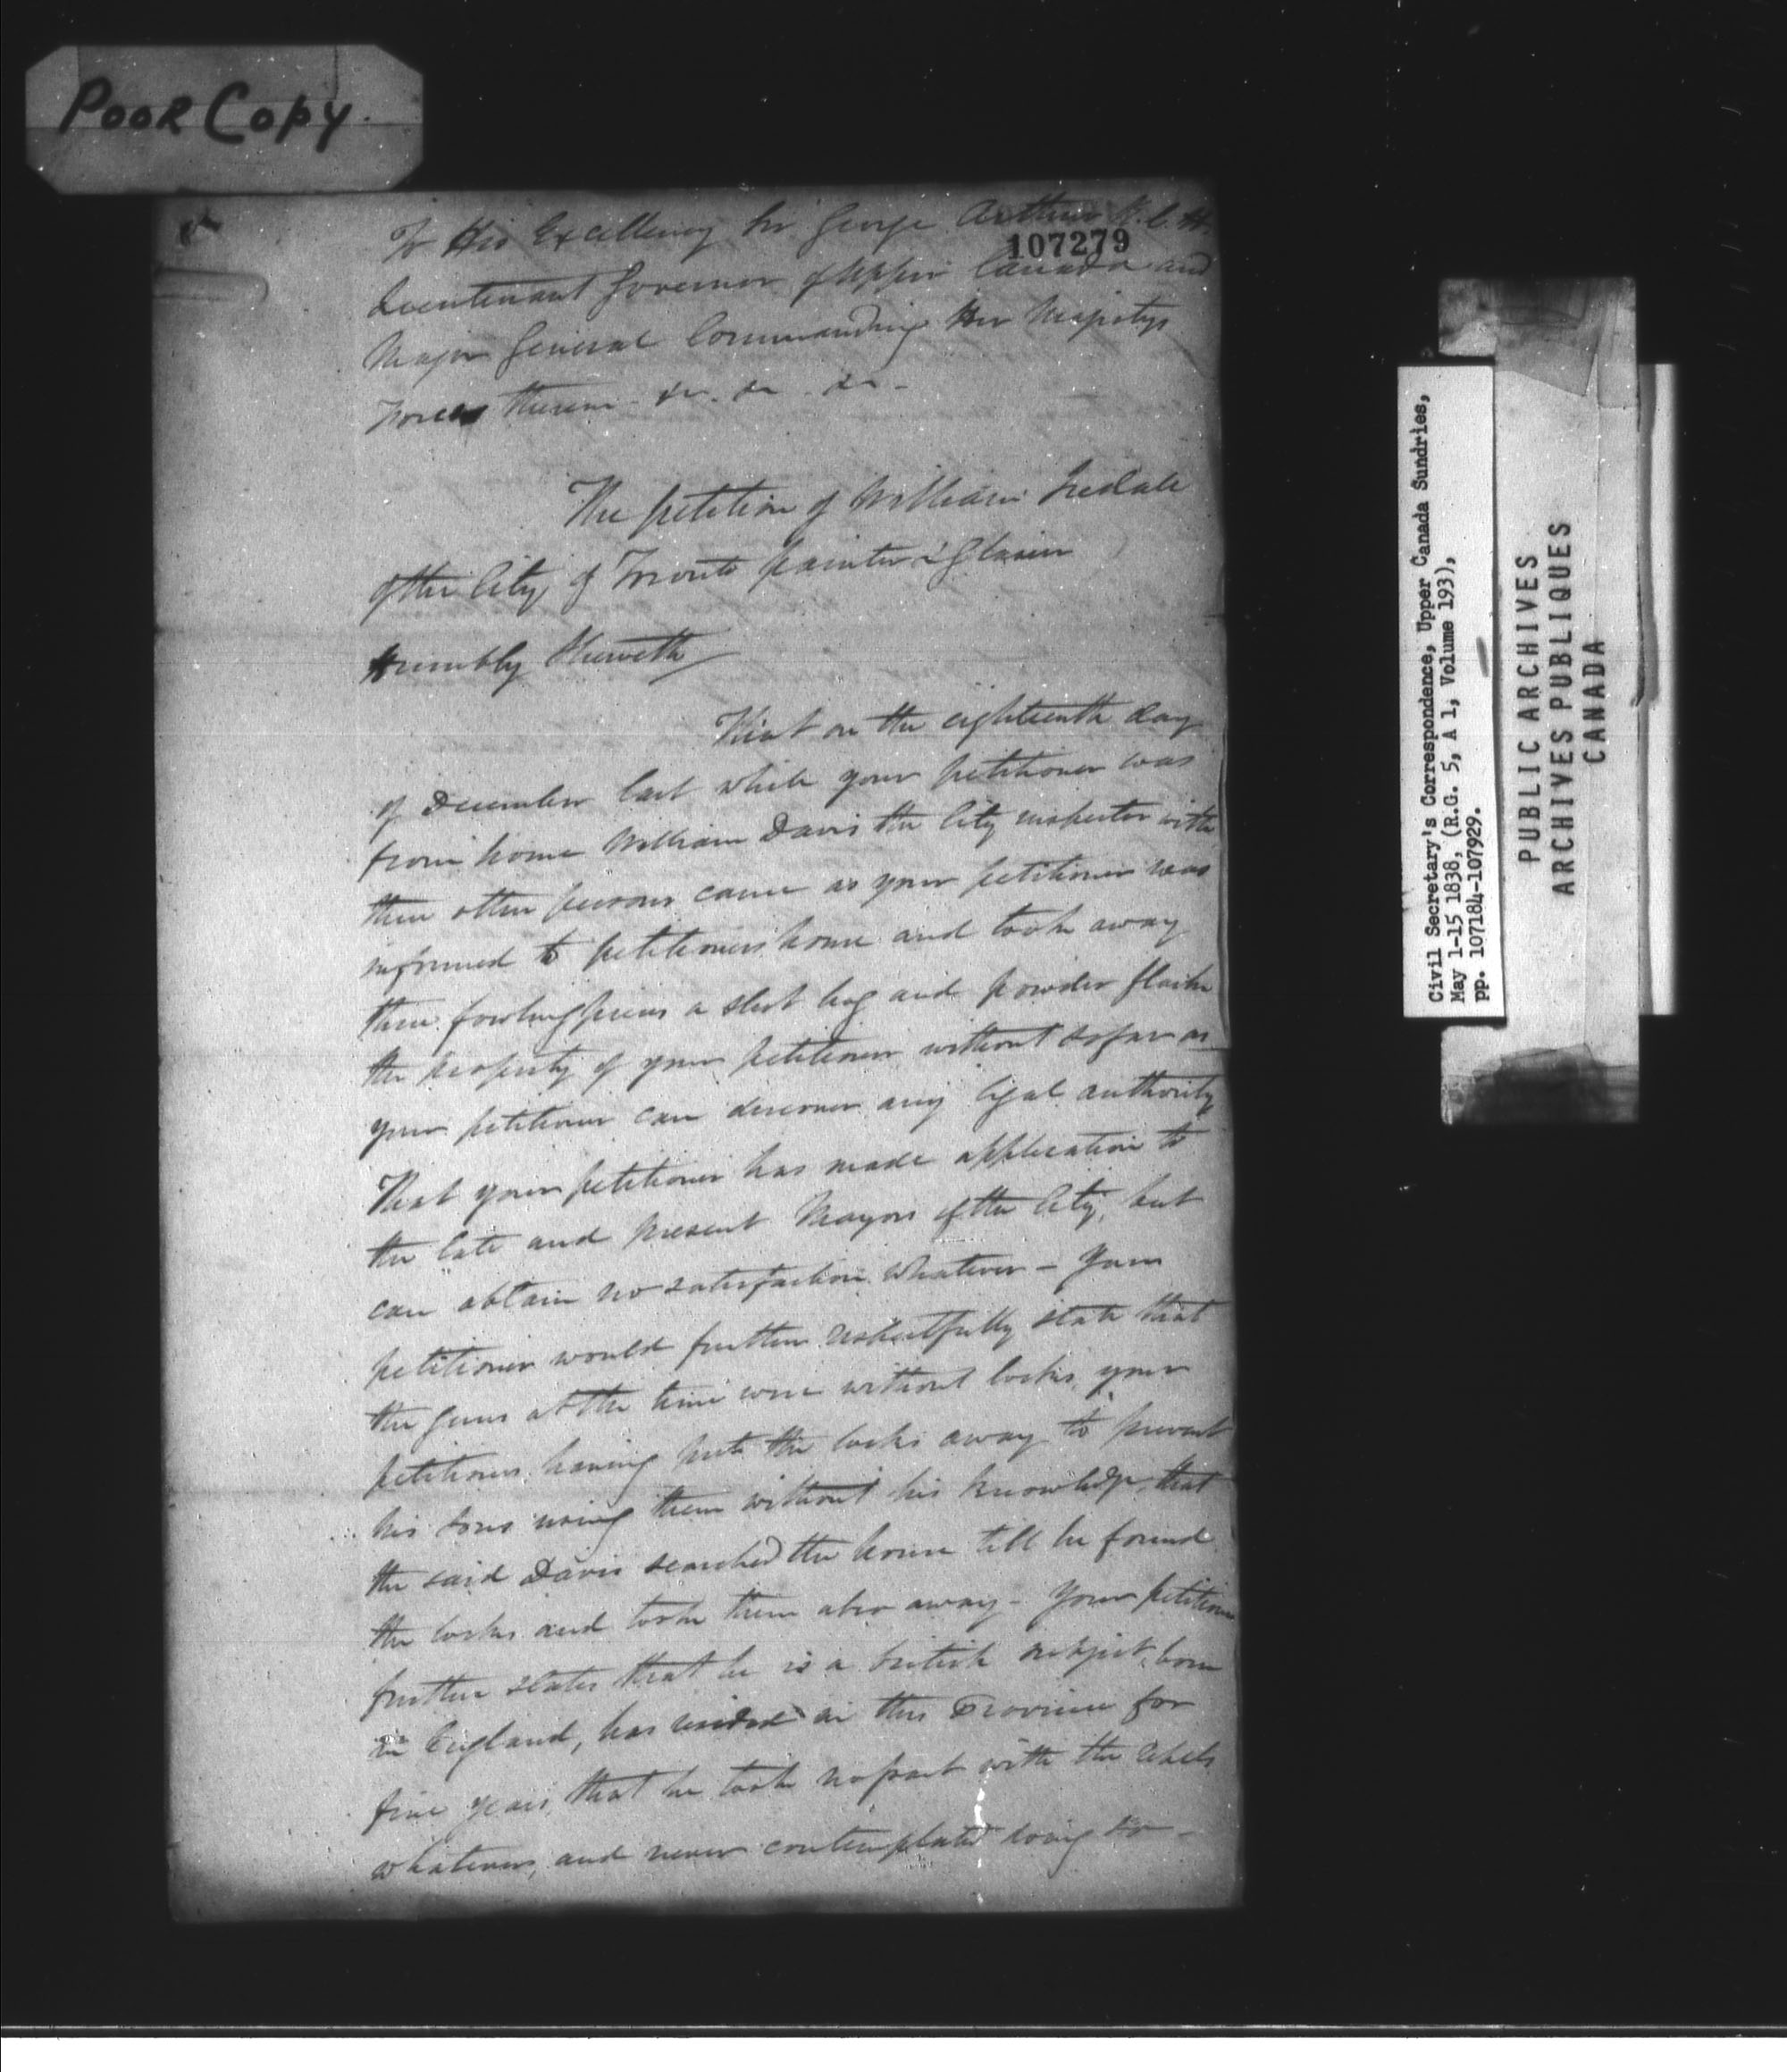 Poor Copy.
To His Excellency Sir George Arthur K.C.H.
107279
Lieutenant Governor of Upper Canada and
Major General Commanding Her Majestys
Forces therein &c. &c. &c. -
The petition of William
of the City of Toronto painter & Glazier
Humbly Sheweth
That on the eighteenth day
of December last while your petitioner was
from home William Davis the City inspector with
three other persons came as your petitioner was
informed to petitioners house and took away
three fowling pieces a shot bag and powder flask
the property of your petitioner without so far as
your petitioner can discover any legal authority
That your petitioner has made application to
the late and present Mayors of the City, but
can obtain no satisfaction whatever - Your
petitioner would further respectfully state that
the guns at the time were without locks, your
petitioner having put the locks away to prevent
his sons using them without his knowledge, that
the said Davis searched the house till he found
the locks and took them also away - Your petitioner
further states that he is a british subject, born
in England, has resided in this Province for
five years, that he took no part with the rebels
whatever, and never contemplated doing so -
Civil Secretary's Correspondence, Upper Canada Sundries,
May 1-15 1838, (R.G. 5, A 1, Volume 193),
pp. 107184-107929.
PUBLIC ARCHIVES
ARCHIVES PUBLIQUES
CANADA